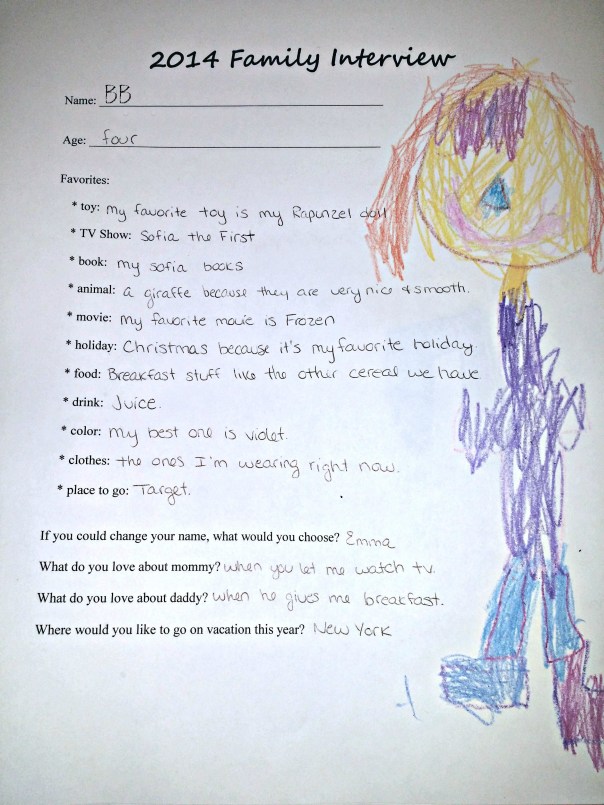 2014 Family Interview
Name: BB
Age: four
Favorites:
* toy: my favorite toy is my Rapunzel doll
* TV Show: Sofia the First
* book: my sofia books
* animal: a giraffe because they are very nice & smooth.
* movie: my favorite movie is Frozen
* holiday: Christmas because it's my favorite holiday.
* food: Breakfast stuff like the other cereal we have
* drink: Juice.
* color: my best one is violet.
* clothes: the ones I'm wearing right now.
* place to go: Target.
If you could change your name, what would you choose? Emma
What do you love about mommy? when you let me watch tv.
What do you love about daddy? when he gives me breakfast.
Where would you like to go on vacation this year? New York